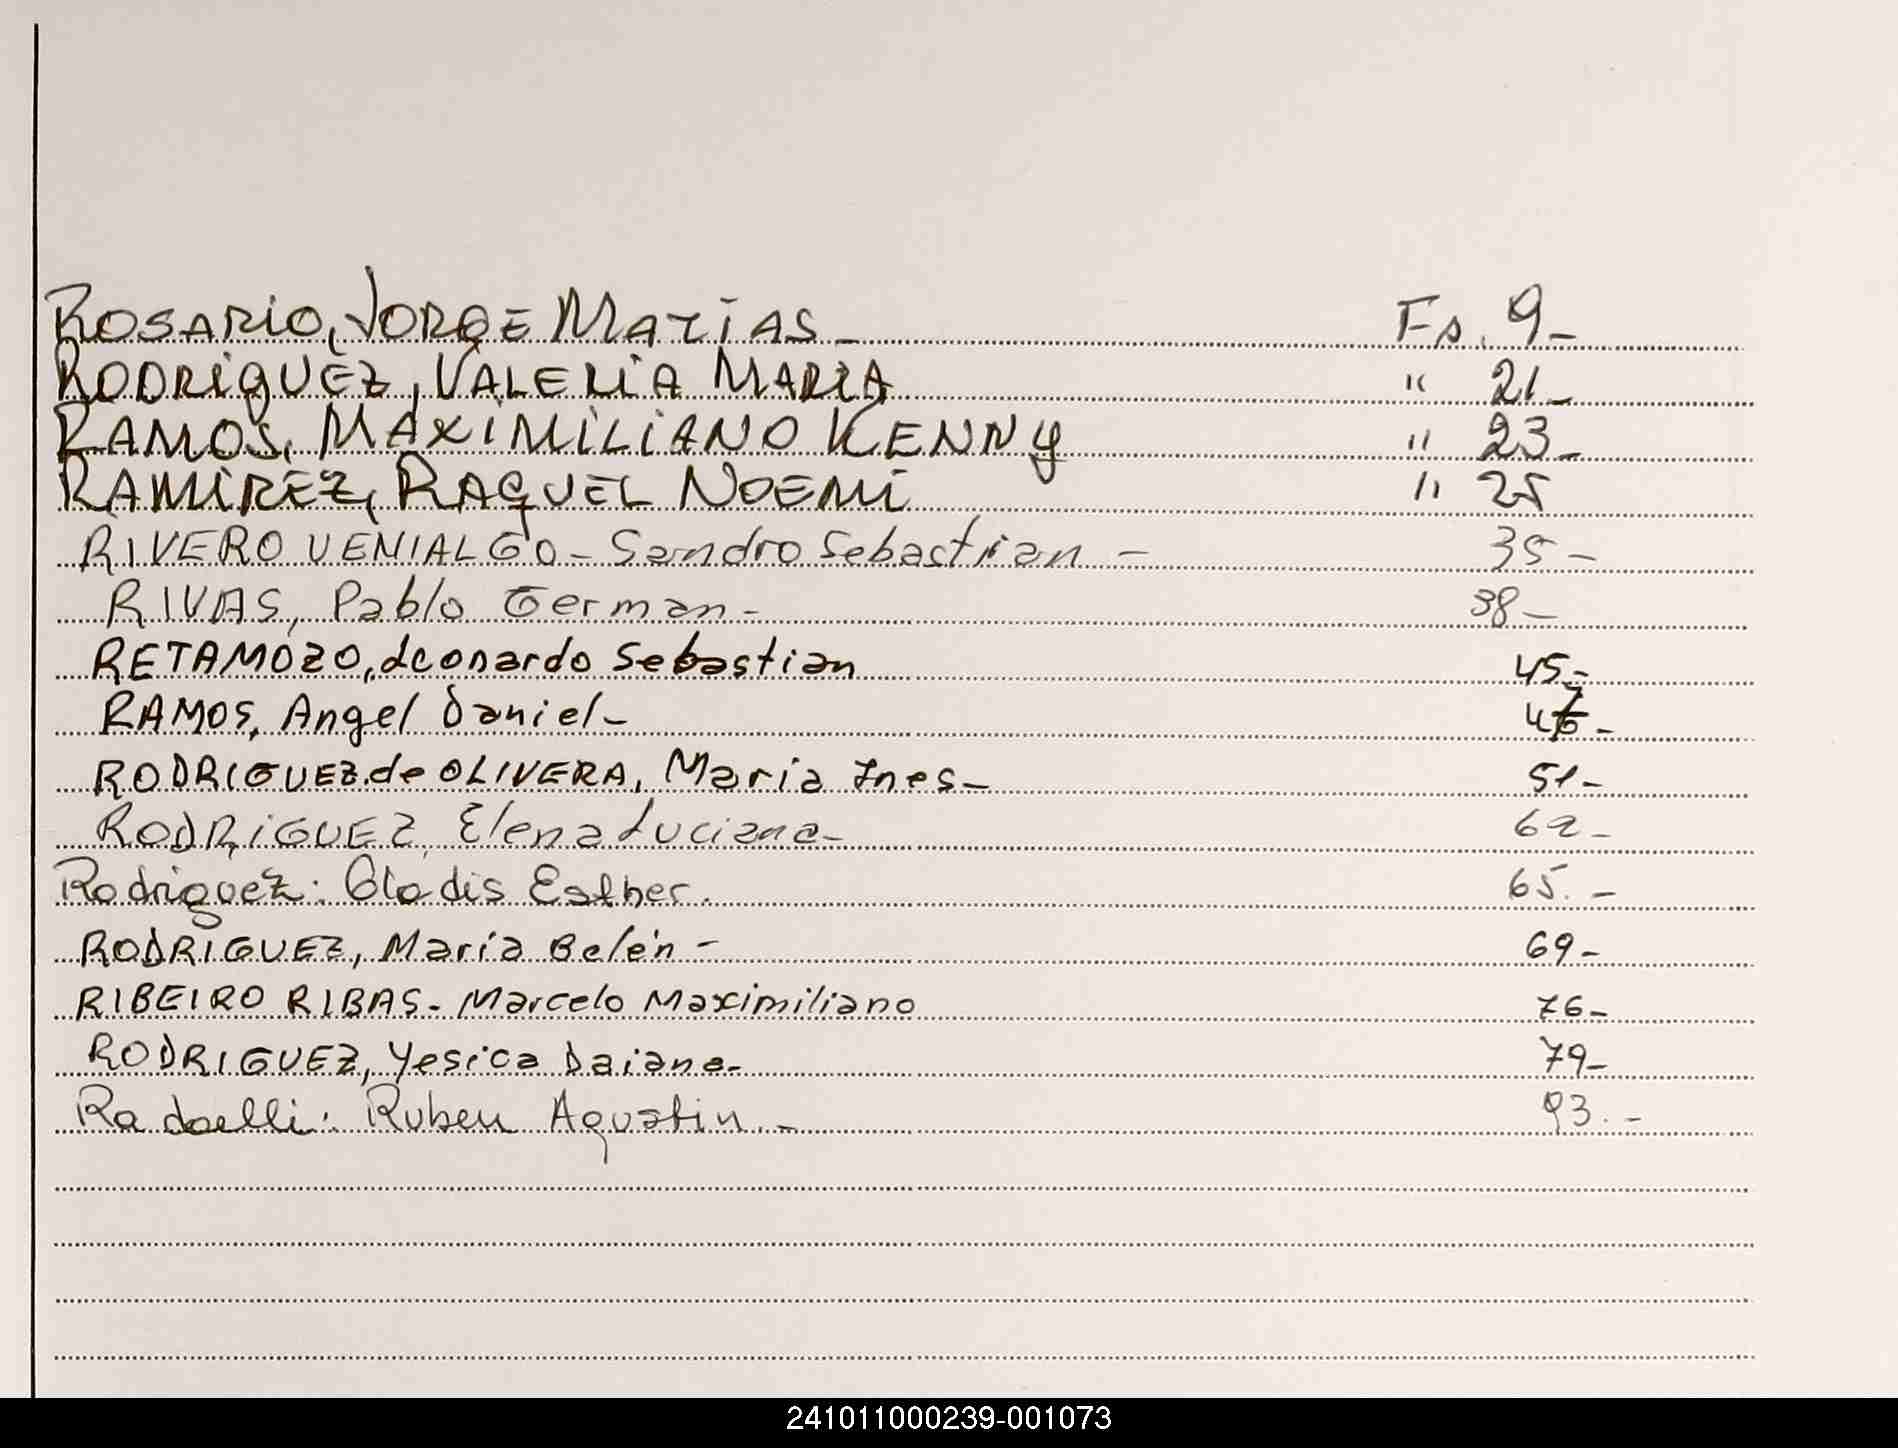 ROSARIO, JORGE MATIAS - Fs. 9-
RODRIGUEZ, VALERIA MARIA " 21-
RAMOS, MAXIMILIANO KENNY " 23-
RAMIREZ, RAQUEL NOEMI " 25
RIVERO VENIALGO - Sandro Sebastian - 35-
RIVAS, Pablo German- 38-
RETAMOZO, Leonardo Sebastian 45-
RAMOS, Angel Daniel-
RODRIGUEZ de OLIVERA, Maria Ines- 51-
RODRIGUEZ, Elena Luciana- 62-
Rodriguez: Gladis Esther. 65.-
RODRIGUEZ, María Belén- 69-
RIBEIRO RIBAS- Marcelo Maximiliano 76-
RODRIGUEZ, Yesica Daiana- 79-
Radaelli: Ruben Agustin.- 93.-
241011000239-001073